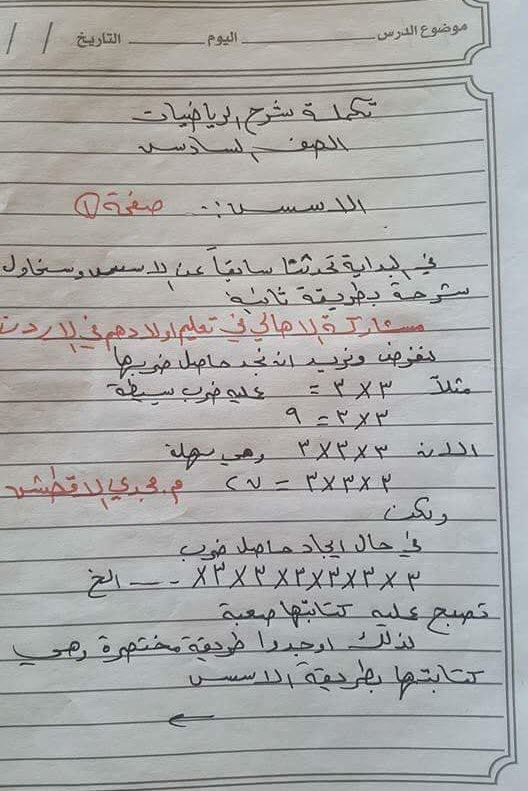 موضوع الدرس ــــــــــ اليوم ــــــــــ التاريخ / /
تكملة شرح الرياضيات
الصف السادس
الاسس :- صفحة ①
في البداية تحدثنا سابقاً عن الاسس وسنحاول
شرحة بطريقة ثانية
مشاركة الاهالي في تعليم اولادهم في الاردن
نفرض ونريد ان نجد حاصل ضربها
مثلاً ٣ × ٣ = عليه ضرب سيطة
٣ × ٣ = ٩
الان ٣ × ٣ × ٣ وهي سهلة
٣ × ٣ × ٣ = ٢٧ م. مجدي الاقطش
ولكن
في حال ايجاد حاصل ضرب
٣ × ٣ × ٣ × ٣ × ٣ × ٣ × ---- الخ
تصبح عليه كتابتها صعبة
لذلك اوجدوا طريقة مختصرة وهي
كتابتها بطريقة الاسس
←